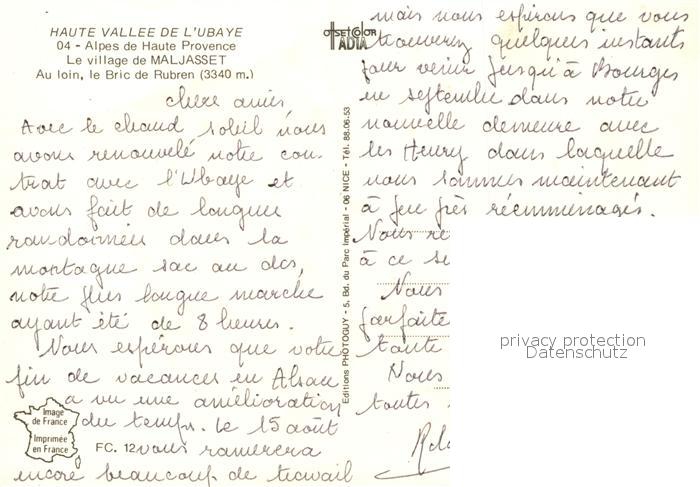 HAUTE VALLEE DE L'UBAYE
04 - Alpes de Haute Provence
Le village de MALJASSET
Au loin, le Bric de Rubren (3340 m.)
offset color
ADIA
chers amis,
Avec le chaud soleil nous
avons renouvelé notre con-
trat avec l'Ubaye et
avons fait de longues
randonnées dans la
montagne sac au dos,
notre plus longue marche
ayant été de 8 heures.
Nous espérons que votre
fin de vacances en Alsace
a vu une amélioration
du temps. Le 15 août
vous ramenera
encore beaucoup de travail
Image
de France
Imprimée
en France
FC. 12
Editions PHOTOGUY - 5, Bd. du Parc Impérial - 06 NICE - Tél. 88.06.53
mais nous espérons que vous
trouverez quelques instants
pour venir jusqu'à Bourges
en septembre dans notre
nouvelle demeure avec
les Henry dans laquelle
nous sommes maintenant
à peu près réemménagés.
Nous re
à ce se
Nous
parfaite
toute
Nous
toutes
privacy protection
Datenschutz